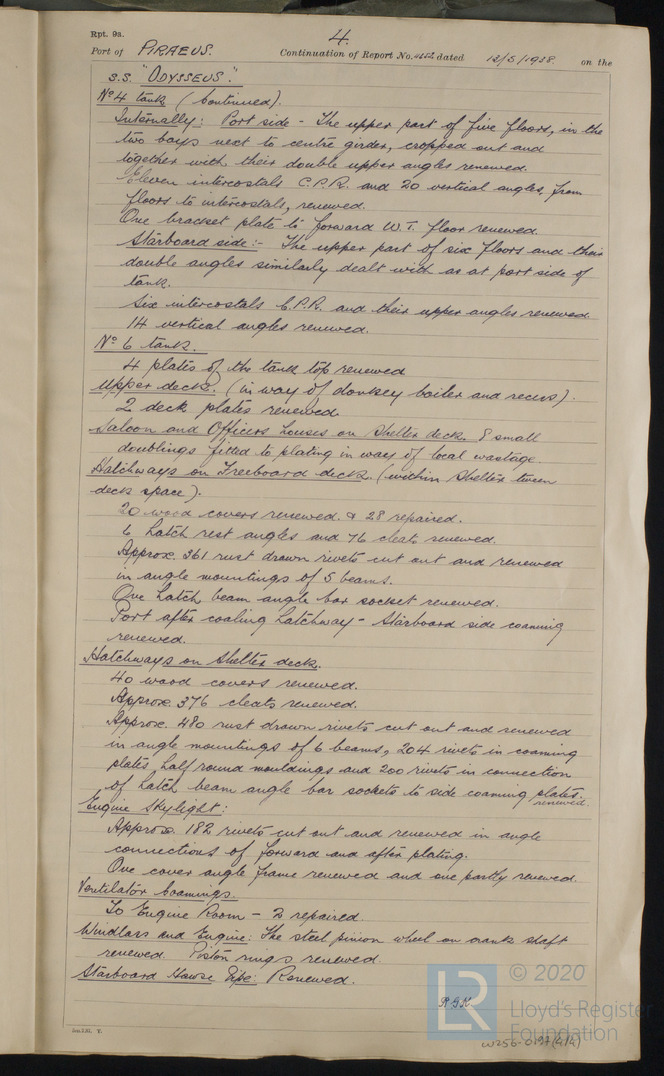 Rpt. 9a.
4.
Port of PIRAEUS. Continuation of Report No. 4652 dated 12/5/1938. on the
S.S. "ODYSSEUS".
No 4 tank (Continued).
Internally: Port side - The upper part of five floors, in the
two bays next to centre girder, cropped out and
together with their double upper angles renewed.
Eleven intercostals C.P.R. and 20 vertical angles, from
floors to intercostals, renewed.
One bracket plate to forward W.T. floor renewed.
Starboard side:- The upper part of six floors and their
double angles similarly dealt with as at port side of
tank.
Six intercostals C.P.R. and their upper angles renewed
14 vertical angles renewed.
No 6 tank.
4 plates of the tank top renewed
Upper deck. (in way of donkey boiler and recess).
2 deck plates renewed
Saloon and Officers houses on Shelter deck. 8 small
doublings fitted to plating in way of local wastage
Hatchways on Freeboard deck. (within Shelter tween
deck space).
20 wood covers renewed. & 28 repaired.
6 hatch rest angles and 76 cleats renewed.
Approx. 361 rust drawn rivets cut out and renewed
in angle mountings of 5 beams.
One hatch beam angle bar socket renewed.
Port after coaling hatchway - Starboard side coaming
renewed.
Hatchways on Shelter deck.
40 wood covers renewed.
Approx. 376 cleats renewed.
Approx. 480 rust drawn rivets cut out and renewed
in angle mountings of 6 beams, 204 rivets in coaming
plates half round mouldings and 200 rivets in connection
of hatch beam angle bar sockets to side coaming plates.
renewed.
Engine Skylight:
Approx. 182 rivets cut out and renewed in angle
connections of forward and after plating.
One cover angle frame renewed and one partly renewed.
Ventilator Coamings.
To Engine Room - 2 repaired.
Windlass and Engine: The steel pinion wheel on crank shaft
renewed. Piston rings renewed.
Starboard Hawse Pipe: Renewed.
© 2020
LR
Lloyd's Register
Foundation
W256-0197(4/4)